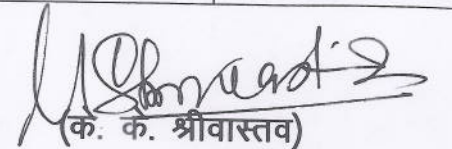 (क. क. श्रीवास्तव)